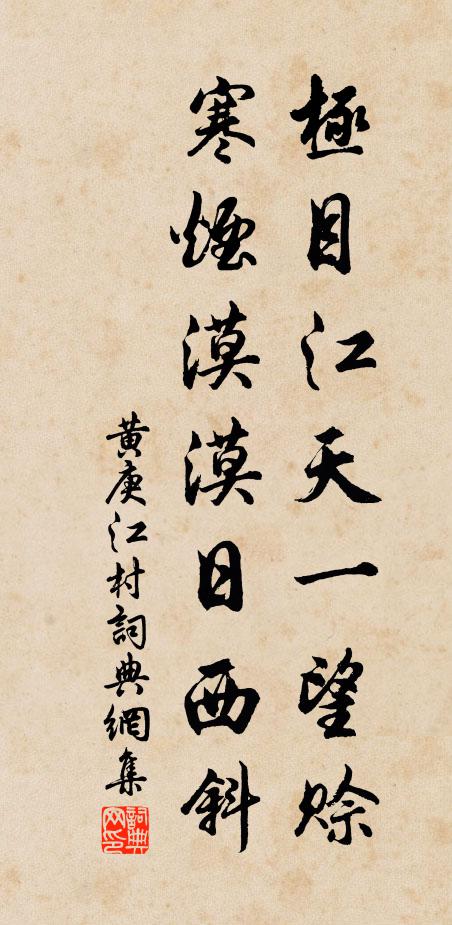 極目江天一望賒
寒煙漠漠日西斜
黃庚江村詞典網集
詞典网印